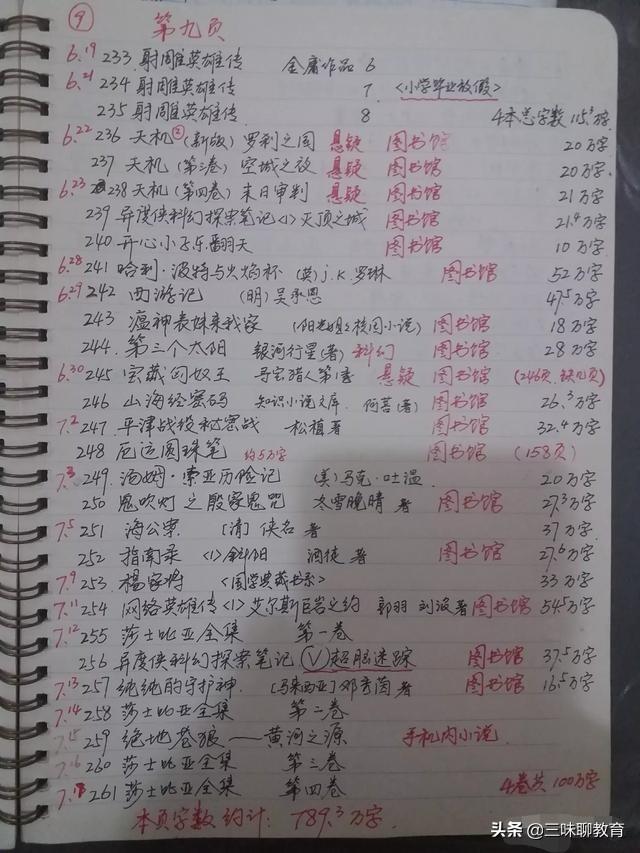 ⑨ 第九页
6.19 233 射雕英雄传 金庸作品 6
6.21 234 射雕英雄传 7 <小学毕业放假>
235 射雕英雄传 8 4本总字数 115.3万字
6.22 236 天机②(新版) 罗刹之国 悬疑 图书馆 20万字
237 天机(第三卷) 空城之夜 悬疑 图书馆 20万字
6.23 238 天机(第四卷) 末日审判 悬疑 图书馆 21万字
239 异度侠科幻探索笔记<1>灭顶之城 图书馆 21.4万字
240 开心小子乐翻天 图书馆 10万字
6.28 241 哈利·波特与火焰杯 (英)J.K.罗琳 图书馆 52万字
6.29 242 西游记 (明)吴承恩 47.5万字
243 瘟神表妹来我家 (阳光姐姐校园小说) 图书馆 18万字
244. 第三个太阳 银河行星(著) 科幻 图书馆 28万字
6.30 245 宝藏匈奴王 寻宝猎人第1季 悬疑 图书馆 (246页,缺几页)
246 山海经密码 知识小说文库. 阿菩(著) 图书馆 26.3万字
7.2 247. 平津战役秘密战 松植著 图书馆 32.4万字
248 厄运圆珠笔 约5万字 图书馆 (158页)
7.3 249. 汤姆·索亚历险记 (美)马克·吐温 20万字
250 鬼吹灯之殷家鬼咒 冬雪晚晴 著 图书馆 27.3万字
7.5 251 海公案. [清]佚名著 37万字
252 指南录 <1>斜阳 酒徒 著 图书馆 27.6万字
7.9 253. 杨家将 <国学典藏书系> 33万字
7.11 254 网络英雄传<1>艾尔斯巨岩之约 郭羽 刘波著 图书馆 54.5万字
7.12 255 莎士比亚全集 第一卷
256 异度侠科幻探索笔记 Ⅴ 超脑迷踪 图书馆 37.5万字
7.13 257 纯纯的守护神. [马来西亚]邓秀茵 著 图书馆 16.5万字
7.14 258 莎士比亚全集 第二卷
7.15 259 绝地苍狼——黄河之源 手机内小说.
7.16 260 莎士比亚全集 第三卷
7.18 261 莎士比亚全集 第四卷 4卷共100万字
本页字数约计: 789.3万字.
头条 @三味聊教育